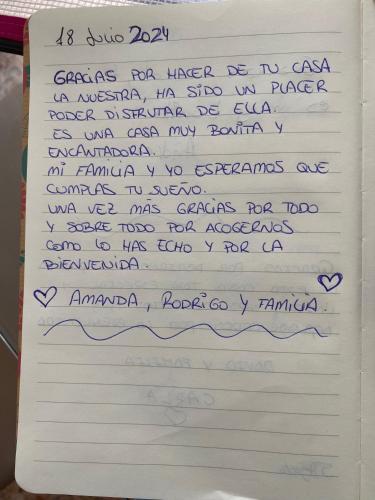 18 Julio 2024
GRACIAS POR HACER DE TU CASA
LA NUESTRA, HA SIDO UN PLACER
PODER DISFRUTAR DE ELLA.
ES UNA CASA MUY BONITA Y
ENCANTADORA.
MI FAMILIA Y YO ESPERAMOS QUE
CUMPLAS TU SUEÑO.
UNA VEZ MÁS GRACIAS POR TODO
Y SOBRE TODO POR ACOGERNOS
COMO LO HAS ECHO Y POR LA
BIENVENIDA.
AMANDA, RODRIGO Y FAMILIA.